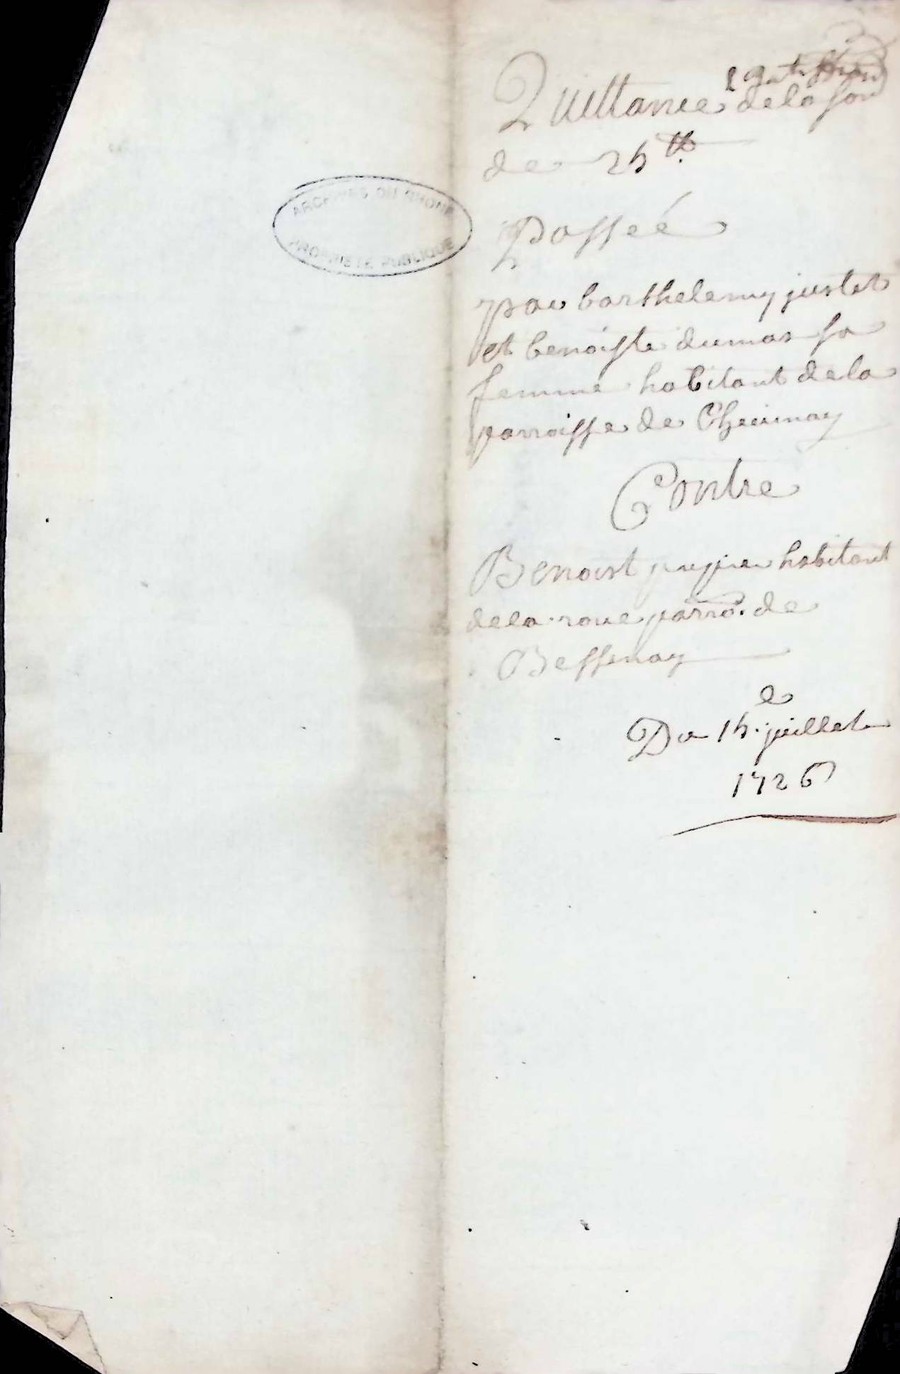 Quittance de la som
de 25 lt.
ARCHIVES DU RHONE
PROPRIETE PUBLIQUE
Passeé
par barthelemy justet
et benoiste dumas sa
femme habitant de la
parroisse de Chevinay
Contre
Benoist habitant
de la roue parro. de
Bessenay
Du 15.e juillet
1726